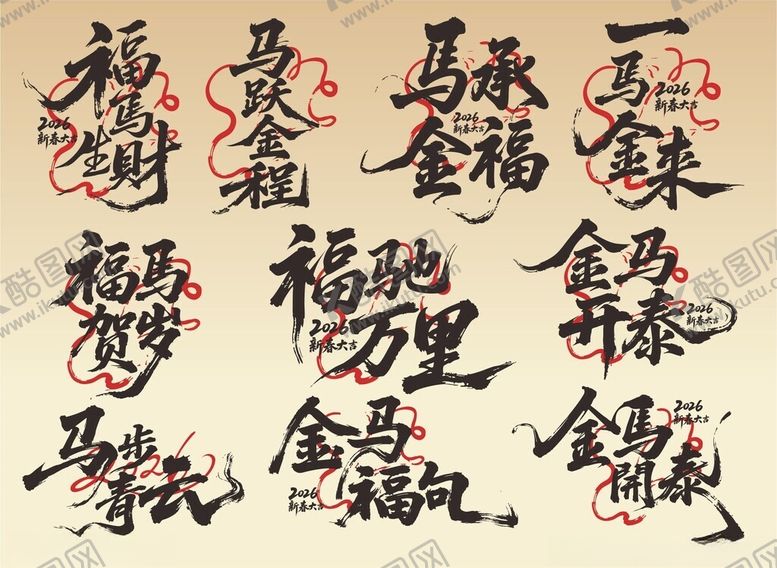 福馬生財
2026
新春大吉
马跃金程
馬承金福
2026
新春大吉
一馬金来
2026
新春大吉
福馬贺岁
福驰万里
2026
新春大吉
金马开泰
2026
新春大吉
马步青云
2026
金马福句
2026
新春大吉
金馬開泰
2026
新春大吉
酷图网
www.ikutu.com